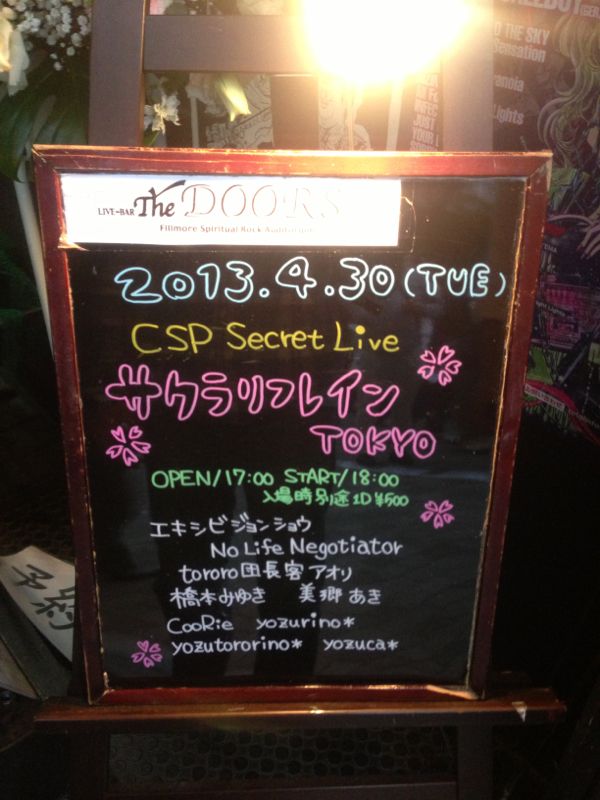 LIVE-BAR The DOORS
Fillmore Spiritual Rock Auditorium
2013.4.30(TUE)
CSP Secret Live
サクラリフレイン
TOKYO
OPEN/17:00 START/18:00
入場時別途1D¥500
エキシビジョンショウ
No Life Negotiator
tororo団長客アオリ
橋本みゆき 美郷あき
CooRie yozurino*
yozutororino* yozuca*
予約
THE SKY
Sensation
Lights